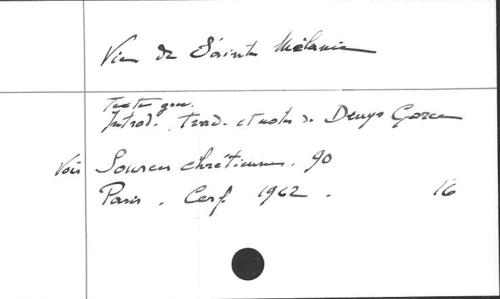 Vie de Sainte Mélanie
Texte grec.
Introd. trad. et notes de Denys Gorce
Voir Sources chrétiennes. 90
Paris. Cerf 1962. 16